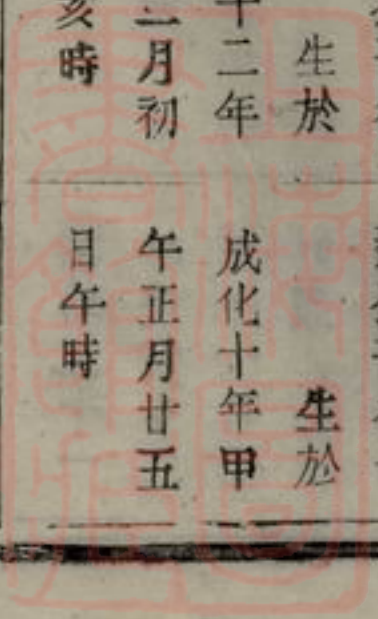 生於
十二年
月初
亥時
生於
成化十年甲
午正月廿五
日午時